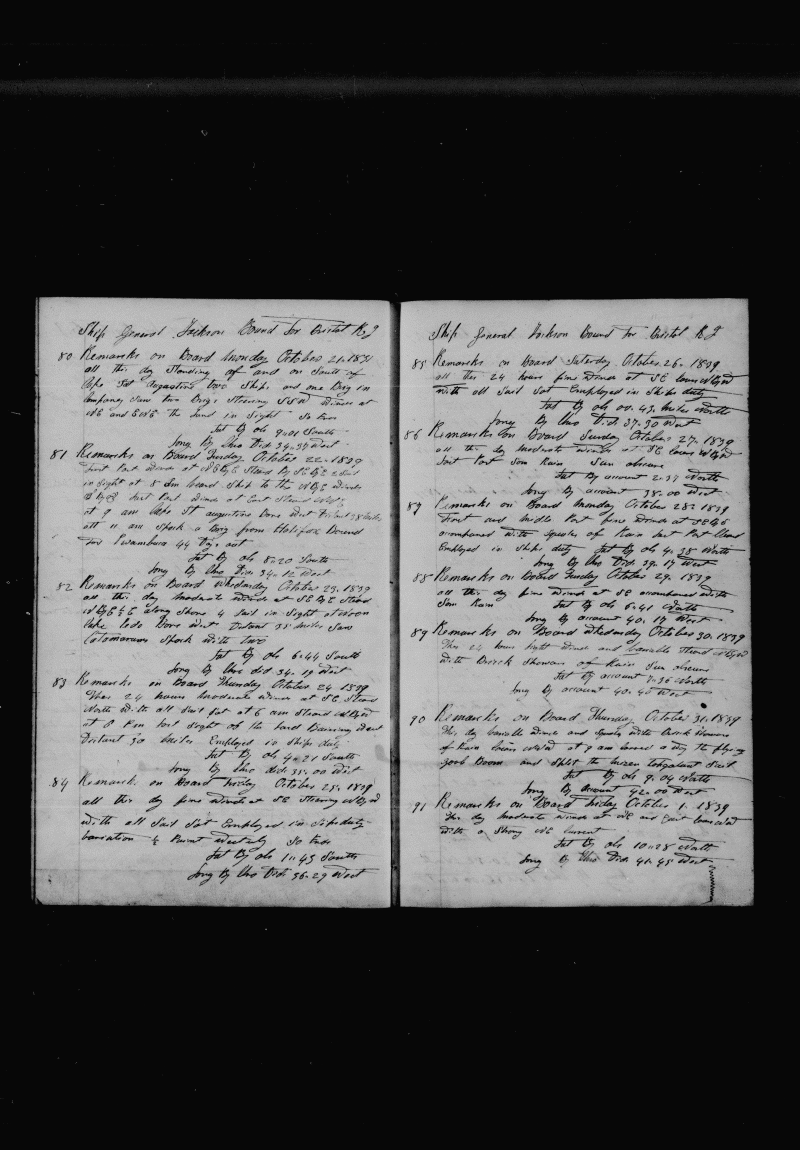 Ship General Jackson Bound for Bristol R I
80 Remarks on Board Monday October 21 1839
all this day Standing of and on South of
Cape Sat Augustine two Ships and one Brig in
Company Saw two Brigs Steering SSW Winds at
the Land in Sight So Ends
Lat By ob 9=01 South
Long By Chro Did 34=37 West
81 Remarks on Board Tuesday October 22=1839
First Part Winds at Steard By
in Sight at 8 Am Ship to the Winds
Last Part Winds at East Steard
at 9 am Cape St augustine bore West Distant 38 miles
att 11 am Spock a Brig from Halifox Bound
for Parnambuca 44 Days out
Lat By ob 8=20 South
Long By Chro Did 34=12 West
82 Remarks on Board Whednsday October 23=1839
all this day moderate winds at SE By E Steard
along Shore 4 Sail in Sight at Noon
Cape Ledo Bore West Distant 35 miles Saw
Catomarans Spock with two
Lat By ob 6=44 South
Long By Chro did 34=19 West
83 Remarks on Board Thursday October 24 1839
Thes 24 hours moderate winds at SE Steard
North with all Sail Sat at 6 am Steard
at 8 Pm lost Sight of the Land Bearing West
Distant 30 Miles Employed in Ships duty
Lat By ob 4=21 South
Long By Chro did 35=00 West
84 Remarks on Board Friday October 25=1839
all this day fine Winds at SE Steering
with all Sail Sat Employed in Ships duty
Variation ½ Point Westerly So Ends
Lat By ob 1=43 South
Long By Chro Did 36=29 West
Ship General Jackson Bound for Bristol R I
85 Remarks on Board Saterday October 26=1839
all thes 24 hours fine Winds at SE
With all Sail Sat Employed in Ships duty
Lat By ob 00=43 Miles North
Long By Chro Did 37=30 West
86 Remarks on Board Sunday October 27=1839
all this day moderate Winds at SE
Last Part Som Rain Sun obscure
Lat By account 2=37 North
Long By account 38=00 West
87 Remarks on Board Monday October 28=1839
First and Middle Part fine Winds at
accompanied with Squales of Rain Last Part Clear
Employed in Ships duty Lat By ob 4=38 North
Long By Chro Did 39=17 West
88 Remarks on Board Tuesday October 29=1839
all this day fine Winds at SE accompanied With
Som Rain Lat By ob 6=41 North
Long By account 40=19 West
89 Remarks on Board Whednsday October 30=1839
Thes 24 hours light Winds and Variable Steard
With Brisck Showers of Rain Sun obscure
Lat By account 7=36 North
Long By account 40=40 West
90 Remarks on Board Thursday October 31=1839
This day Variable Winds and Squaly with Brisck Showers
of Rain at 9 am Carred a Way the flying
gibb Boom and Split the mizen Topgalant Sail
Lat By ob 9=04 North
Long By Account 42=00 West
91 Remarks on Board Friday October 1=1839
This day moderate Winds at NE and East
With a Strong NE Current
Lat By ob 10=28 North
Long By Chro Did 41=45 West